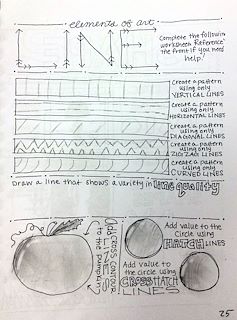 elements of art
LINE
Complete the following
worksheet. Reference
the front if you need
help!
Create a pattern
using only
VERTICAL LINES
Create a pattern
using only
HORIZONTAL LINES
Create a pattern
using only
DIAGONAL LINES
Create a pattern
using only
ZIGZAG LINES
Create a pattern
using only
CURVED LINES
Draw a line that shows a variety in line quality
Add CROSS CONTOUR
LINES
to the pumpkin
Add value to the
Circle using
HATCH LINES
Add value to
the circle using
CROSSHATCH
LINES
25